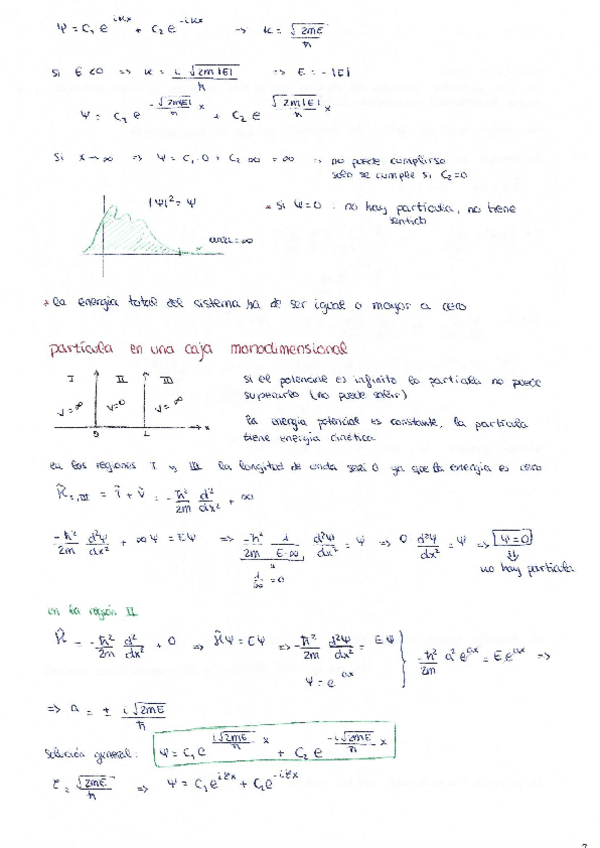 Ψ = C₁ e^{iKx} + C₂ e^{-iKx} → K = √2mE / ħ
si E<0 ⇒ K = i √2m|E| / ħ ⇒ E = -|E|
Ψ = C₁ e^{-√2m|E|/ħ x} + C₂ e^{√2m|E|/ħ x}
si x→∞ ⇒ Ψ = C₁·0 + C₂ ∞ = ∞ → no puede cumplirse
solo se cumple si C₂=0
|Ψ|² = Ψ
* si Ψ=0 : no hay partícula, no tiene
sentido
área = ∞
* la energía total del sistema ha de ser igual o mayor a cero
partícula en una caja monodimensional
I II III
V=∞ V=0 V=∞
0 L x
si el potencial es infinito la partícula no puede
superarlo (no puede salir)
la energía potencial es constante, la partícula
tiene energía cinética
en las regiones I y III la longitud de onda será 0 ya que la energía es cero
Ĥ_{I,III} = T̂ + V̂ = -ħ²/2m d²/dx² + ∞
-ħ²/2m d²Ψ/dx² + ∞Ψ = EΨ ⇒ -ħ²/2m 1/E-∞ d²Ψ/dx² = Ψ ⇒ 0 d²Ψ/dx² = Ψ ⇒ Ψ=0
1/∞ = 0
no hay partícula
en la región II
Ĥ = -ħ²/2m d²/dx² + 0 ⇒ ĤΨ = EΨ ⇒ -ħ²/2m d²Ψ/dx² = EΨ
Ψ = e^{ax}
-ħ²/2m a² e^{ax} = E e^{ax} ⇒
⇒ a = ± i√2mE / ħ
solución general: Ψ = C₁ e^{i√2mE/ħ x} + C₂ e^{-i√2mE/ħ x}
= √2mE / ħ ⇒ Ψ = C₁ e + C₂ e